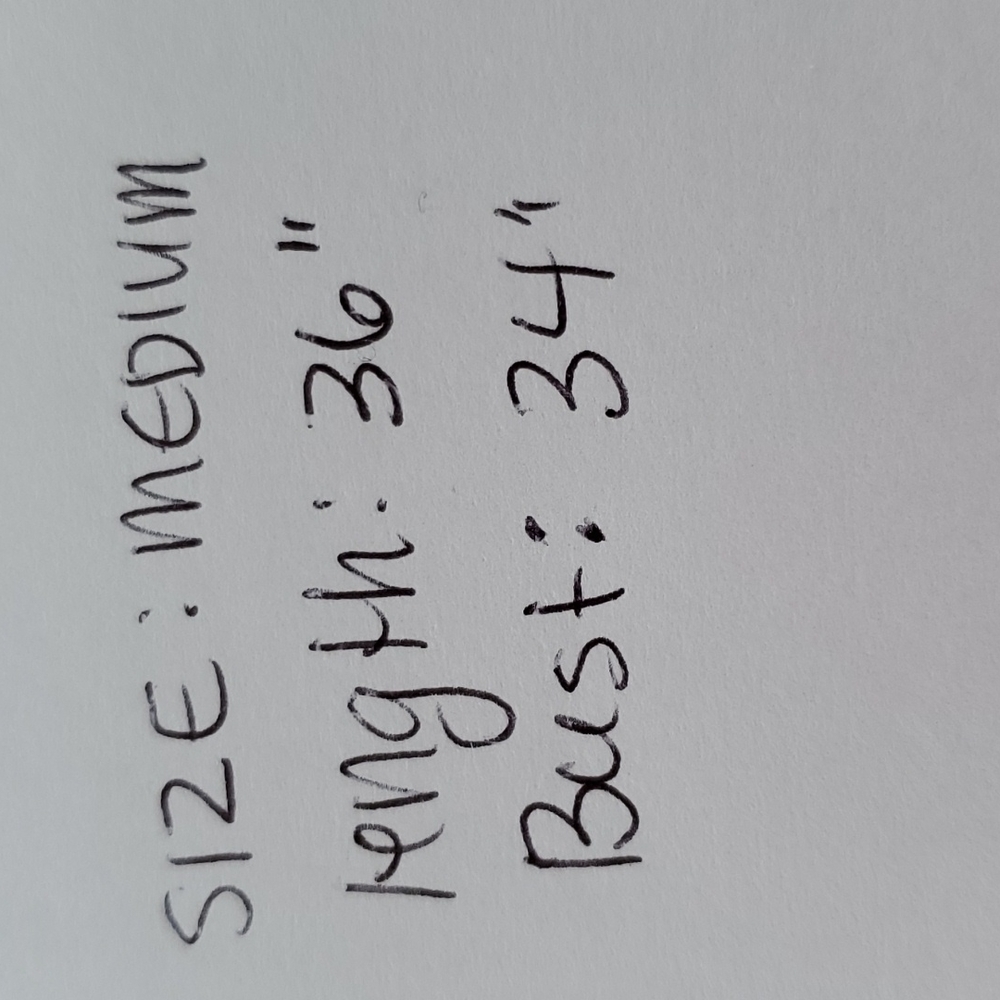 SIZE: MEDIUM
length: 36"
Bust: 34"